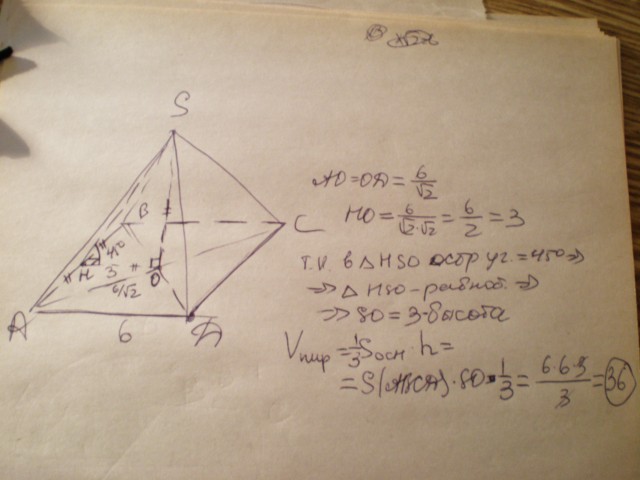 S
B
C
H
45°
3
6/√2
O
A
6
D
AO=OD=6/√2
HO=6/(√2·√2)=6/2=3
т.к. в △HSO остр уг.=45°⇒
⇒ △ HSO-равноб. ⇒
⇒ SO=3-высота
Vпир=1/3Sосн·h=
=S(ABCD)·SO·1/3=6·6·3/3=36